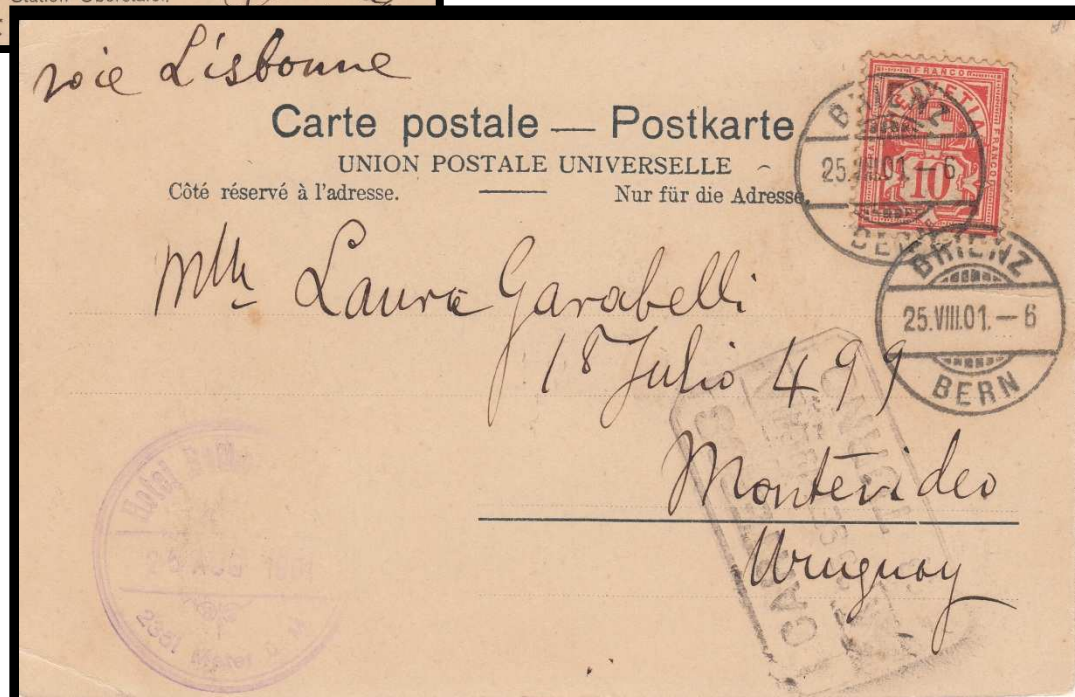 Station Oberstafel,
voie Lisbonne
Carte postale — Postkarte
UNION POSTALE UNIVERSELLE
Côté réservé à l'adresse. Nur für die Adresse.
FRANCO
HELVETIA
FRANCO
10
BRIENZ
25.VIII.01.—6
BRIENZ
25.VIII.01.—6
BERN
Mlle Laura Garabelli
18 Julio 499
Montévideo
Uruguay
Hotel
25 AUG 1901
2351 Meter ü. M.